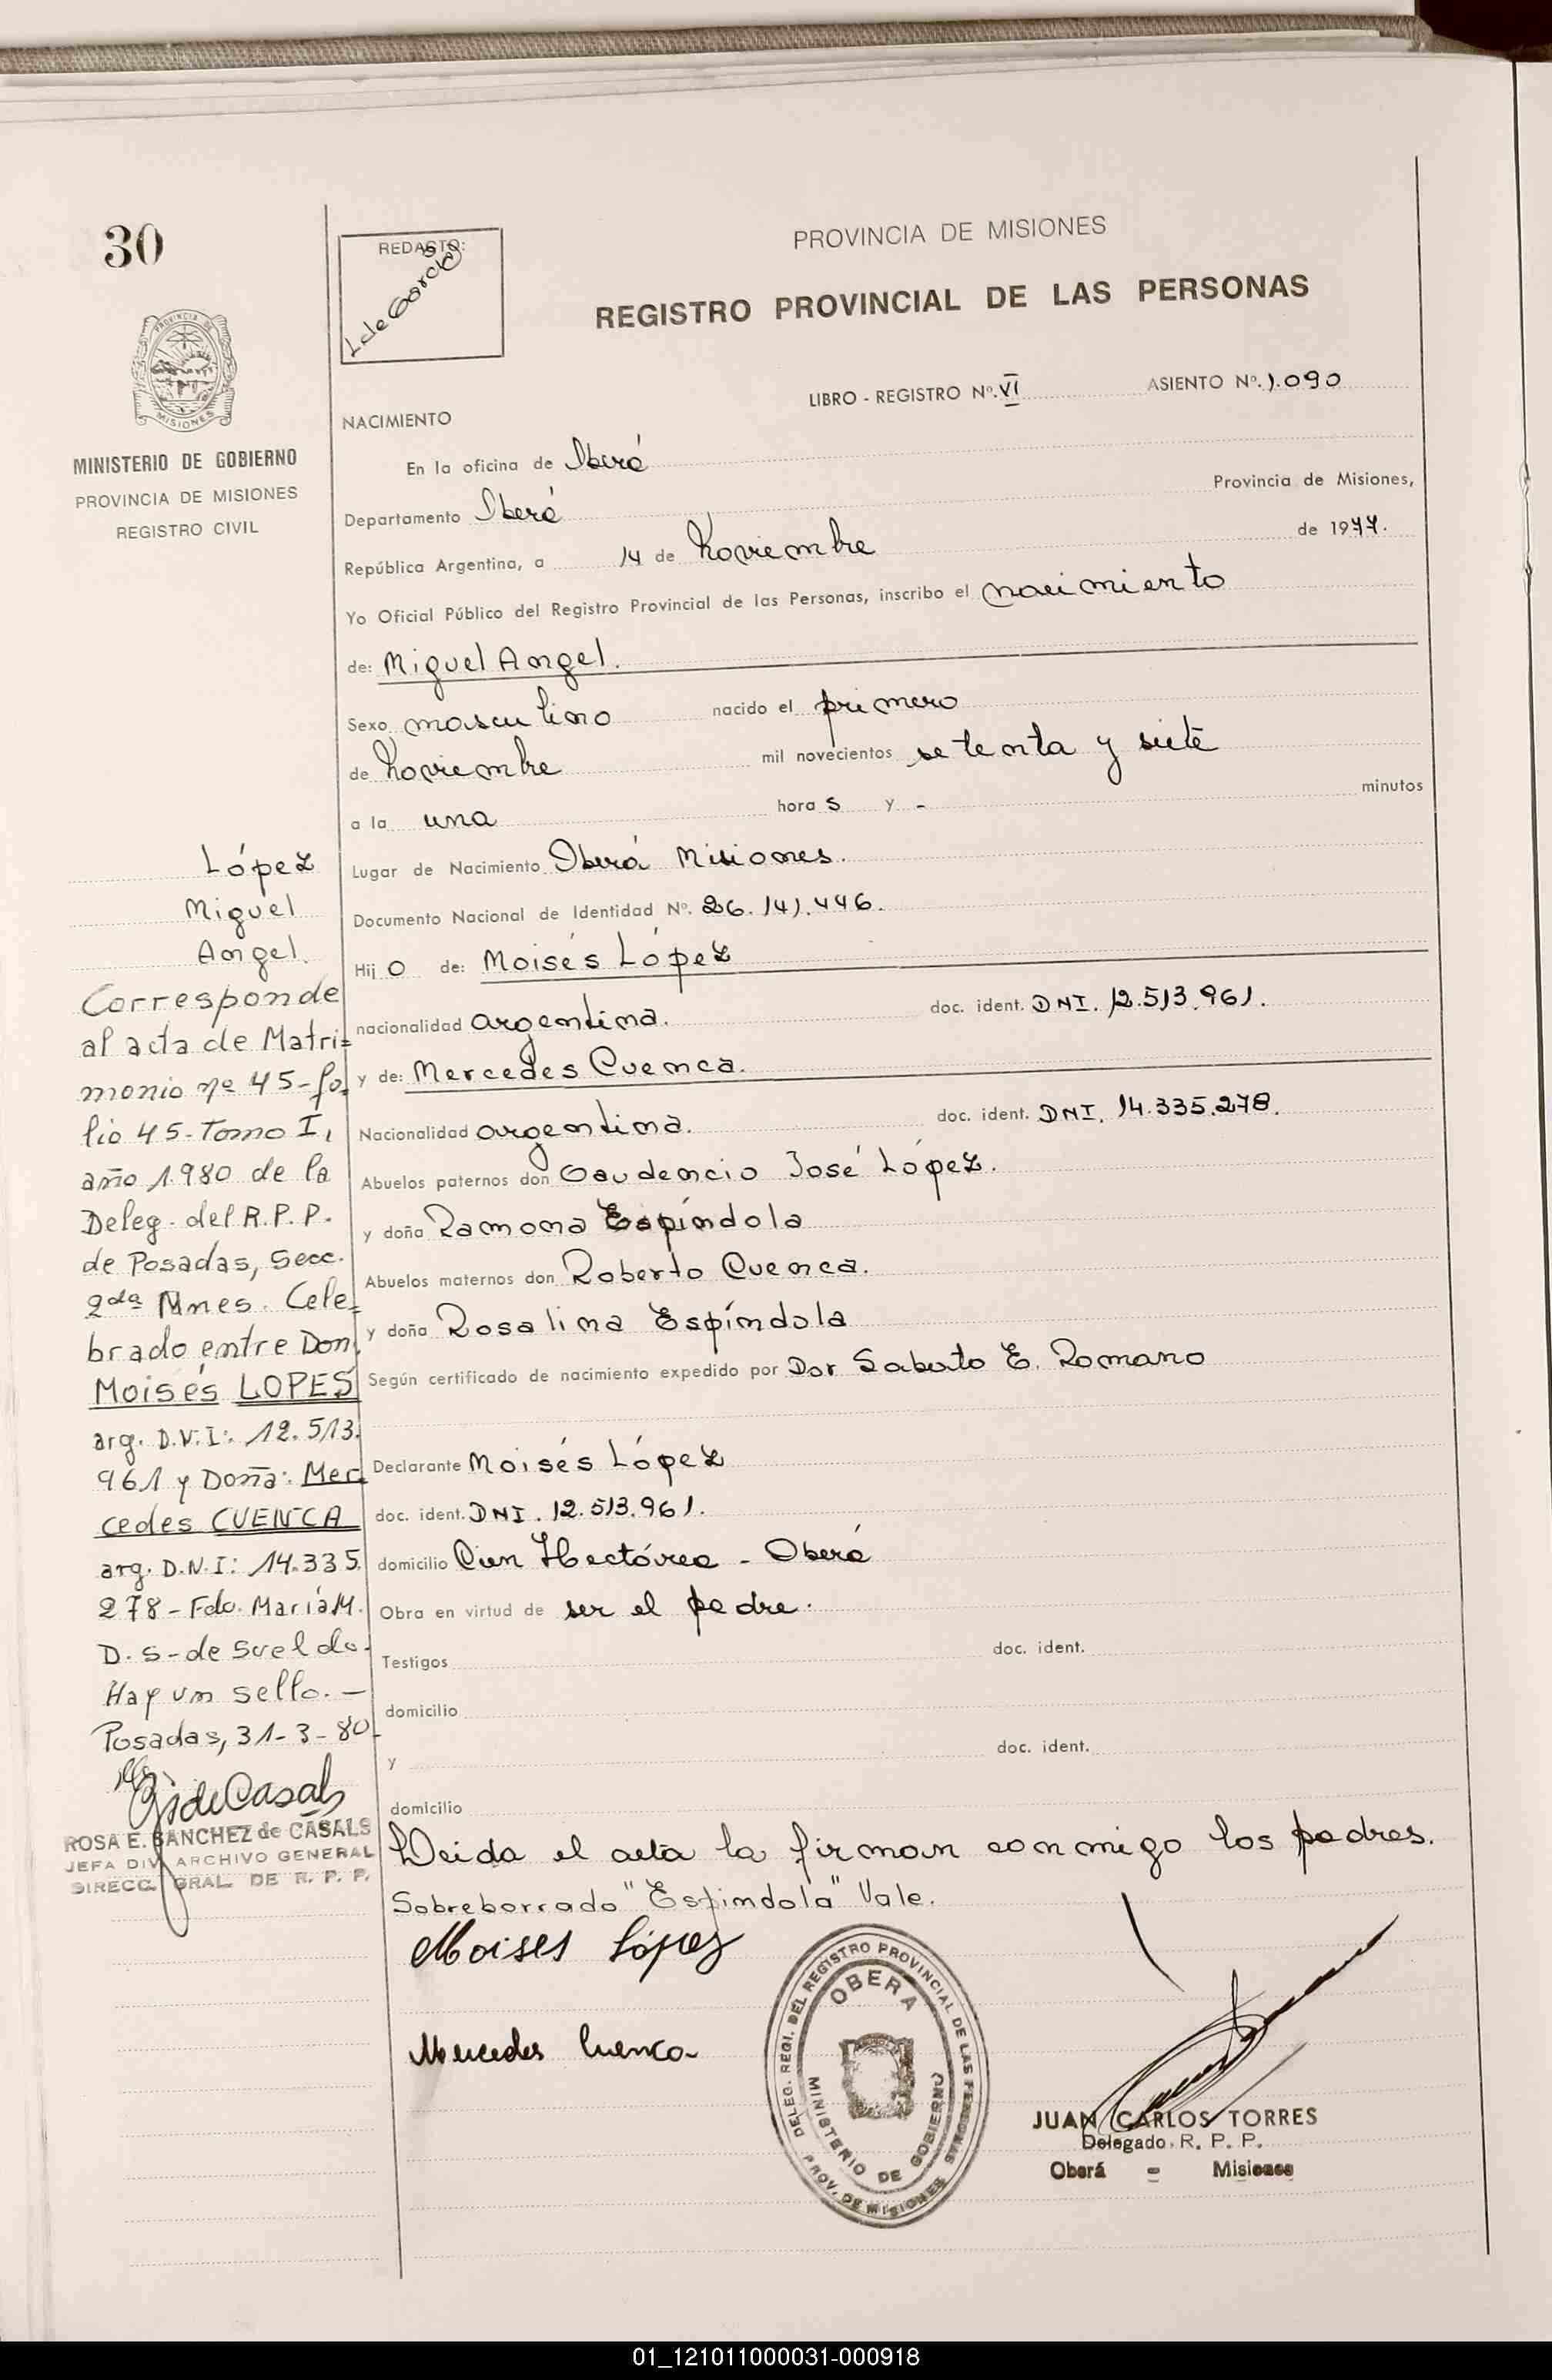 30
REDACTO:
L de Garcia
PROVINCIA DE MISIONES
REGISTRO PROVINCIAL DE LAS PERSONAS
PROVINCIA DE
MISIONES
MINISTERIO DE GOBIERNO
PROVINCIA DE MISIONES
REGISTRO CIVIL
LIBRO - REGISTRO Nº. VI ASIENTO Nº. 1.090
NACIMIENTO
En la oficina de Oberá
Departamento Oberá Provincia de Misiones,
República Argentina, a 14 de Noviembre de 1977.
Yo Oficial Público del Registro Provincial de las Personas, inscribo el nacimiento
de: Miguel Angel.
Sexo masculino nacido el primero
de Noviembre mil novecientos setenta y siete
a la una hora s y - minutos
Lugar de Nacimiento Oberá Misiones.
Documento Nacional de Identidad Nº. 26.141.446.
Hij o de: Moisés López
nacionalidad argentina. doc. ident. DNI. 12.513.961.
y de: Mercedes Cuenca.
Nacionalidad argentina. doc. ident. DNI. 14.335.278.
Abuelos paternos don Gaudencio José López.
y doña Ramona Espíndola
Abuelos maternos don Roberto Cuenca.
y doña Rosalina Espíndola
Según certificado de nacimiento expedido por Dor E. Romano
Declarante Moisés López
doc. ident. DNI. 12.513.961.
domicilio Cien Hectárea - Oberá
Obra en virtud de ser el padre.
Testigos doc. ident.
domicilio
y doc. ident.
domicilio
Leida el acta la firman conmigo los padres.
Sobreborrado "Espindola" Vale.
Moises López
Mercedes Cuenca
DELEG. REGI. DEL REGISTRO PROVINCIAL DE LAS PERSONAS
OBERA
MINISTERIO DE GOBIERNO
PROV. DE MISIONES
JUAN CARLOS TORRES
Delegado. R. P. P.
Oberá - Misiones
López
Miguel
Angel.
Corresponde
al acta de Matri=
monio nº 45-fo.
lio 45-Tomo I,
año 1.980 de la
Deleg. del R.P.P.
de Posadas, Secc.
2da Mnes. Cele=
brado entre Don,
Moisés LOPES
arg. D.N.I.: 12.513.
961 y Doña: Mer
cedes CUENCA
arg. D.N.I: 14.335.
278-Fdo. María M.
D. S-de Sueldo.
Hay un sello.-
Posadas, 31-3-80-
ROSA E. SANCHEZ de CASALS
JEFA DIV. ARCHIVO GENERAL
DIRECC. GRAL. DE R. P. P.
01_121011000031-000918